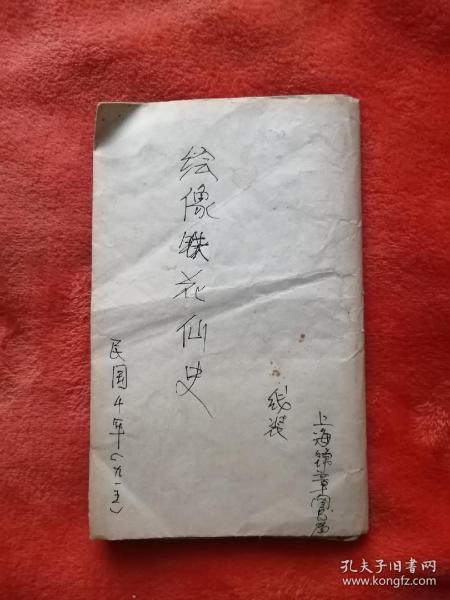 上海锦章图局
线装
绘像铁花仙史
民国4年(九一五)
孔夫子旧书网
www.kongfz.com